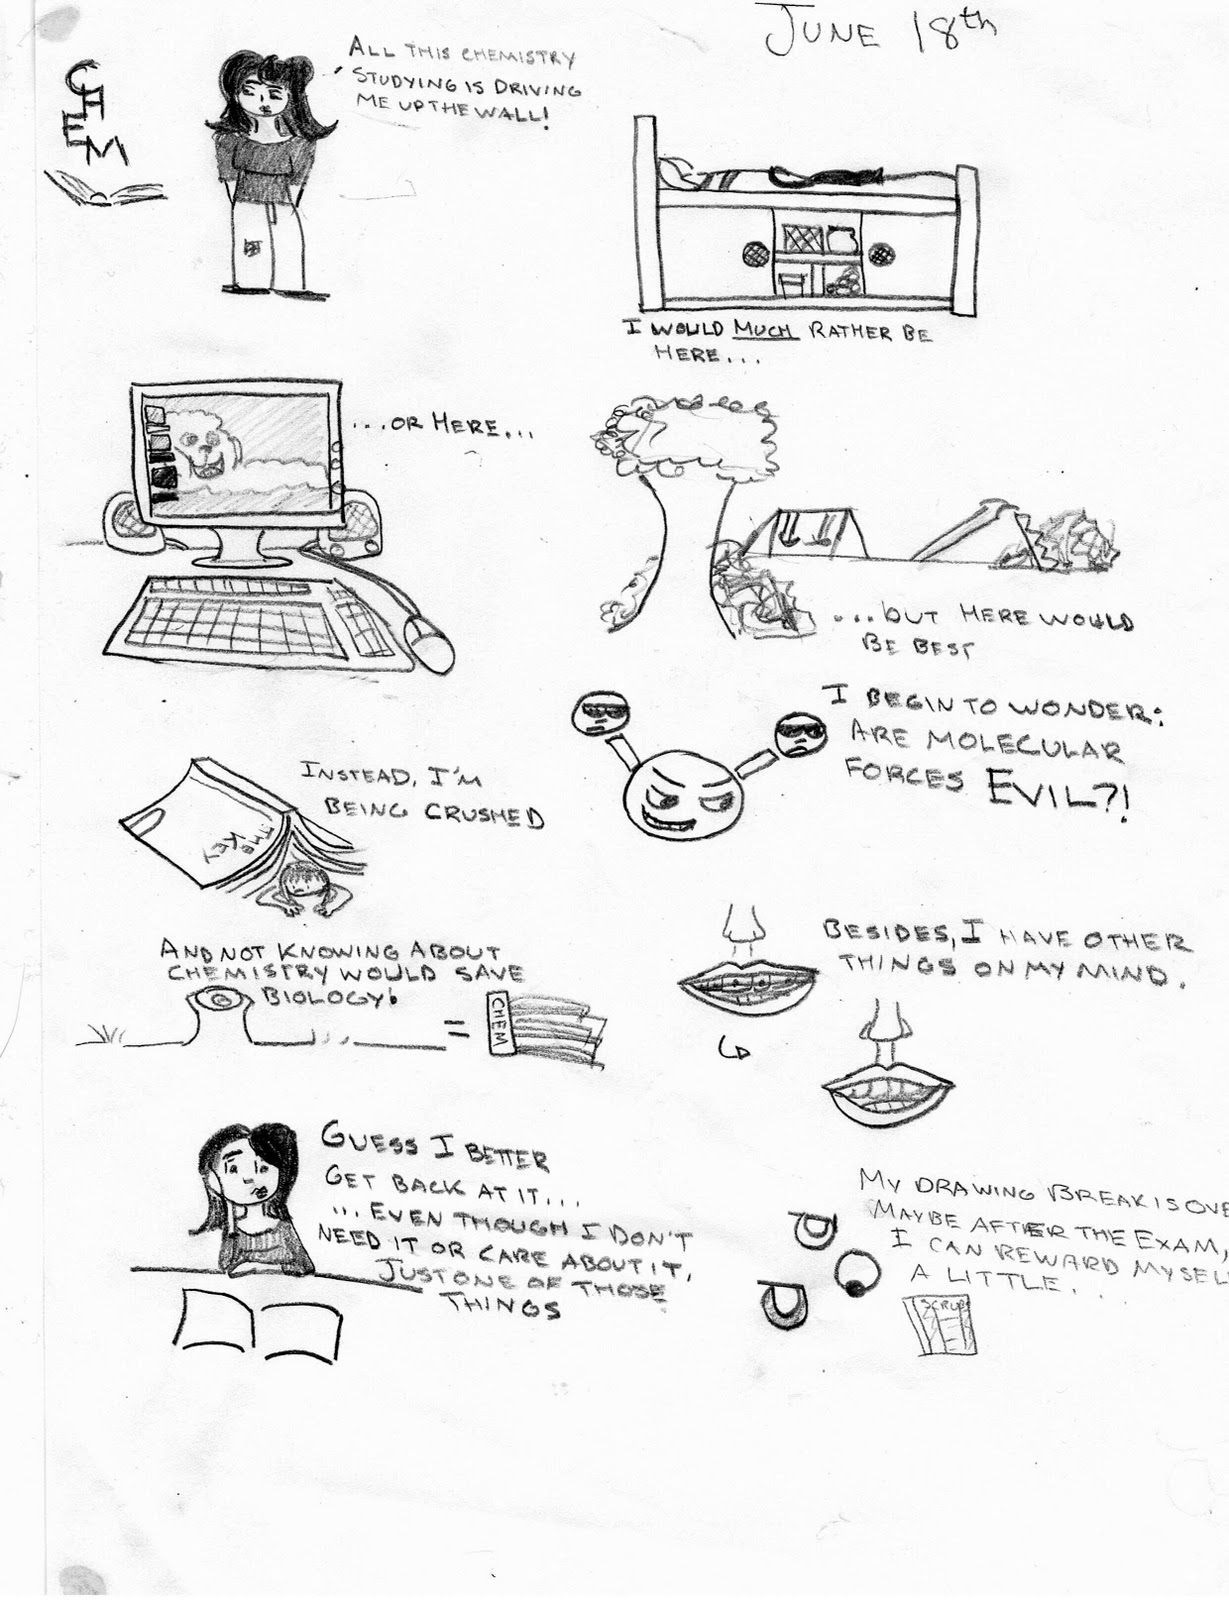 JUNE 18th
CHEM
ALL THIS CHEMISTRY
STUDYING IS DRIVING
ME UP THE WALL!
I WOULD MUCH RATHER BE
HERE...
...OR HERE...
...BUT HERE WOULD
BE BEST
INSTEAD, I'M
BEING CRUSHED
THE KEY
I BEGIN TO WONDER:
ARE MOLECULAR
FORCES EVIL?!
AND NOT KNOWING ABOUT
CHEMISTRY WOULD SAVE
BIOLOGY!
= CHEM
BESIDES, I HAVE OTHER
THINGS ON MY MIND.
GUESS I BETTER
GET BACK AT IT...
...EVEN THOUGH I DON'T
NEED IT OR CARE ABOUT IT.
JUST ONE OF THOSE
THINGS
MY DRAWING BREAK IS OVE
MAYBE AFTER THE EXAM,
I CAN REWARD MYSEL
A LITTLE...
SCRUBS